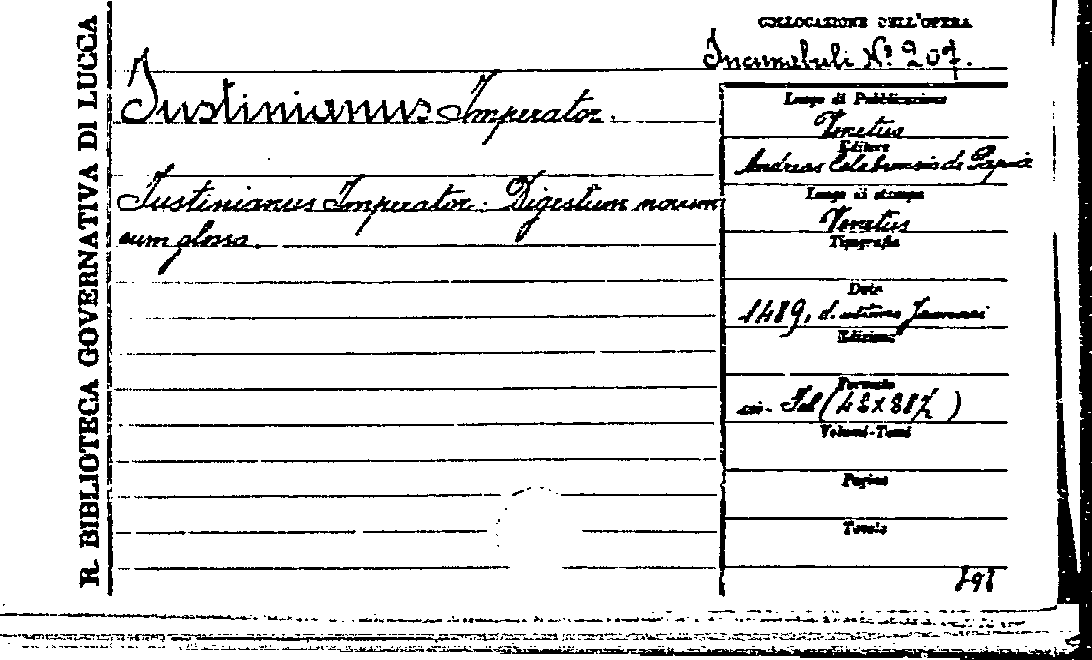 R. BIBLIOTECA GOVERNATIVA DI LUCCA
COLLOCAZIONE DELL'OPERA
Incunabuli N.º 207.
Iustinianus Imperator.
Iustinianus Imperator. Digestum novum
cum glossa.
Luogo di Pubblicazione
Venetus
Editore
Andreas Calabrensis de Papia
Luogo di stampa
Venetus
Tipografia
Data
1489, d.
Edizione
Formato
in-Fol
Volumi-Tomi
Pagine
Tavole